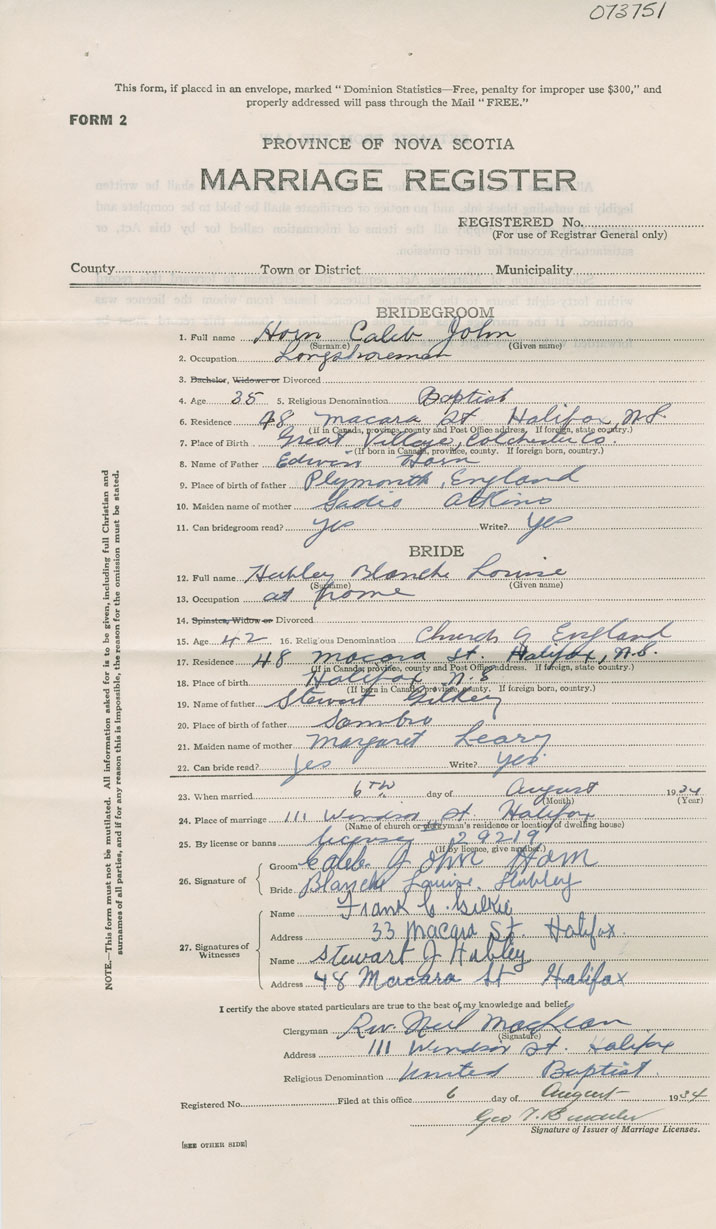 073751
This form, if placed in an envelope, marked "Dominion Statistics—Free, penalty for improper use $300," and
properly addressed will pass through the Mail "FREE."
FORM 2
PROVINCE OF NOVA SCOTIA
MARRIAGE REGISTER
REGISTERED No.
(For use of Registrar General only)
County Town or District Municipality
BRIDEGROOM
1. Full name Horn Caleb John
(Surname) (Given name)
2. Occupation Longshoreman
3. Bachelor, Widower or Divorced
4. Age 35 5. Religious Denomination Baptist
6. Residence 48 Macara St Halifax, N.S.
(If in Canada, province, county and Post Office address. If foreign, state country.)
7. Place of Birth Great Village, Colchester Co.
(If born in Canada, province, county. If foreign born, country.)
8. Name of Father Edwin Horn
9. Place of birth of father Plymouth, England
10. Maiden name of mother Sadie Atkins
11. Can bridegroom read? yes Write? Yes
BRIDE
12. Full name Hubley Blanche Louise
(Surname) (Given name)
13. Occupation at home
14. Spinster, Widow or Divorced
15. Age 42 16. Religious Denomination Church of England
17. Residence 48 Macara St. Halifax, N.S.
(If in Canada, province, county and Post Office address. If foreign, state country.)
18. Place of birth Halifax N.S
(If born in Canada, province, county. If foreign born, country.)
19. Name of father Stewart Gilkey
20. Place of birth of father Sambro
21. Maiden name of mother Margaret Leary
22. Can bride read? yes Write? yes
23. When married 6TH day of August 1934
(Month) (Year)
24. Place of marriage 111 Windsor St. Halifax
(Name of church or clergyman's residence or location of dwelling house)
25. By license or banns license 29219
(If by licence, give number.)
26. Signature of Groom Caleb John Horn
Bride Blanche Louise Hubley
27. Signatures of Witnesses
Name Frank C. Gilkie
Address 33 Macara St. Halifax.
Name Stewart J Hubley
Address 48 Macara St Halifax
I certify the above stated particulars are true to the best of my knowledge and belief.
Clergyman Rev. Neil MacLean
(Signature)
Address 111 Windsor St. Halifax
Religious Denomination United Baptist
Registered No. Filed at this office 6 day of August 1934
Geo
Signature of Issuer of Marriage Licenses.
[SEE OTHER SIDE]
NOTE.—This form must not be mutilated. All information asked for is to be given, including full Christian and
surnames of all parties, and if for any reason this is impossible, the reason for the omission must be stated.